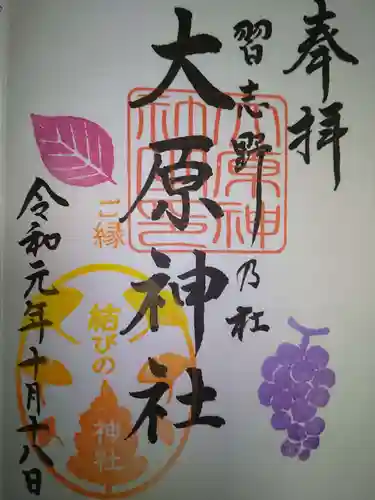 奉拝
習志野乃社
大原神社
大原神社印
ご縁
結びの
神社
令和元年十月十八日